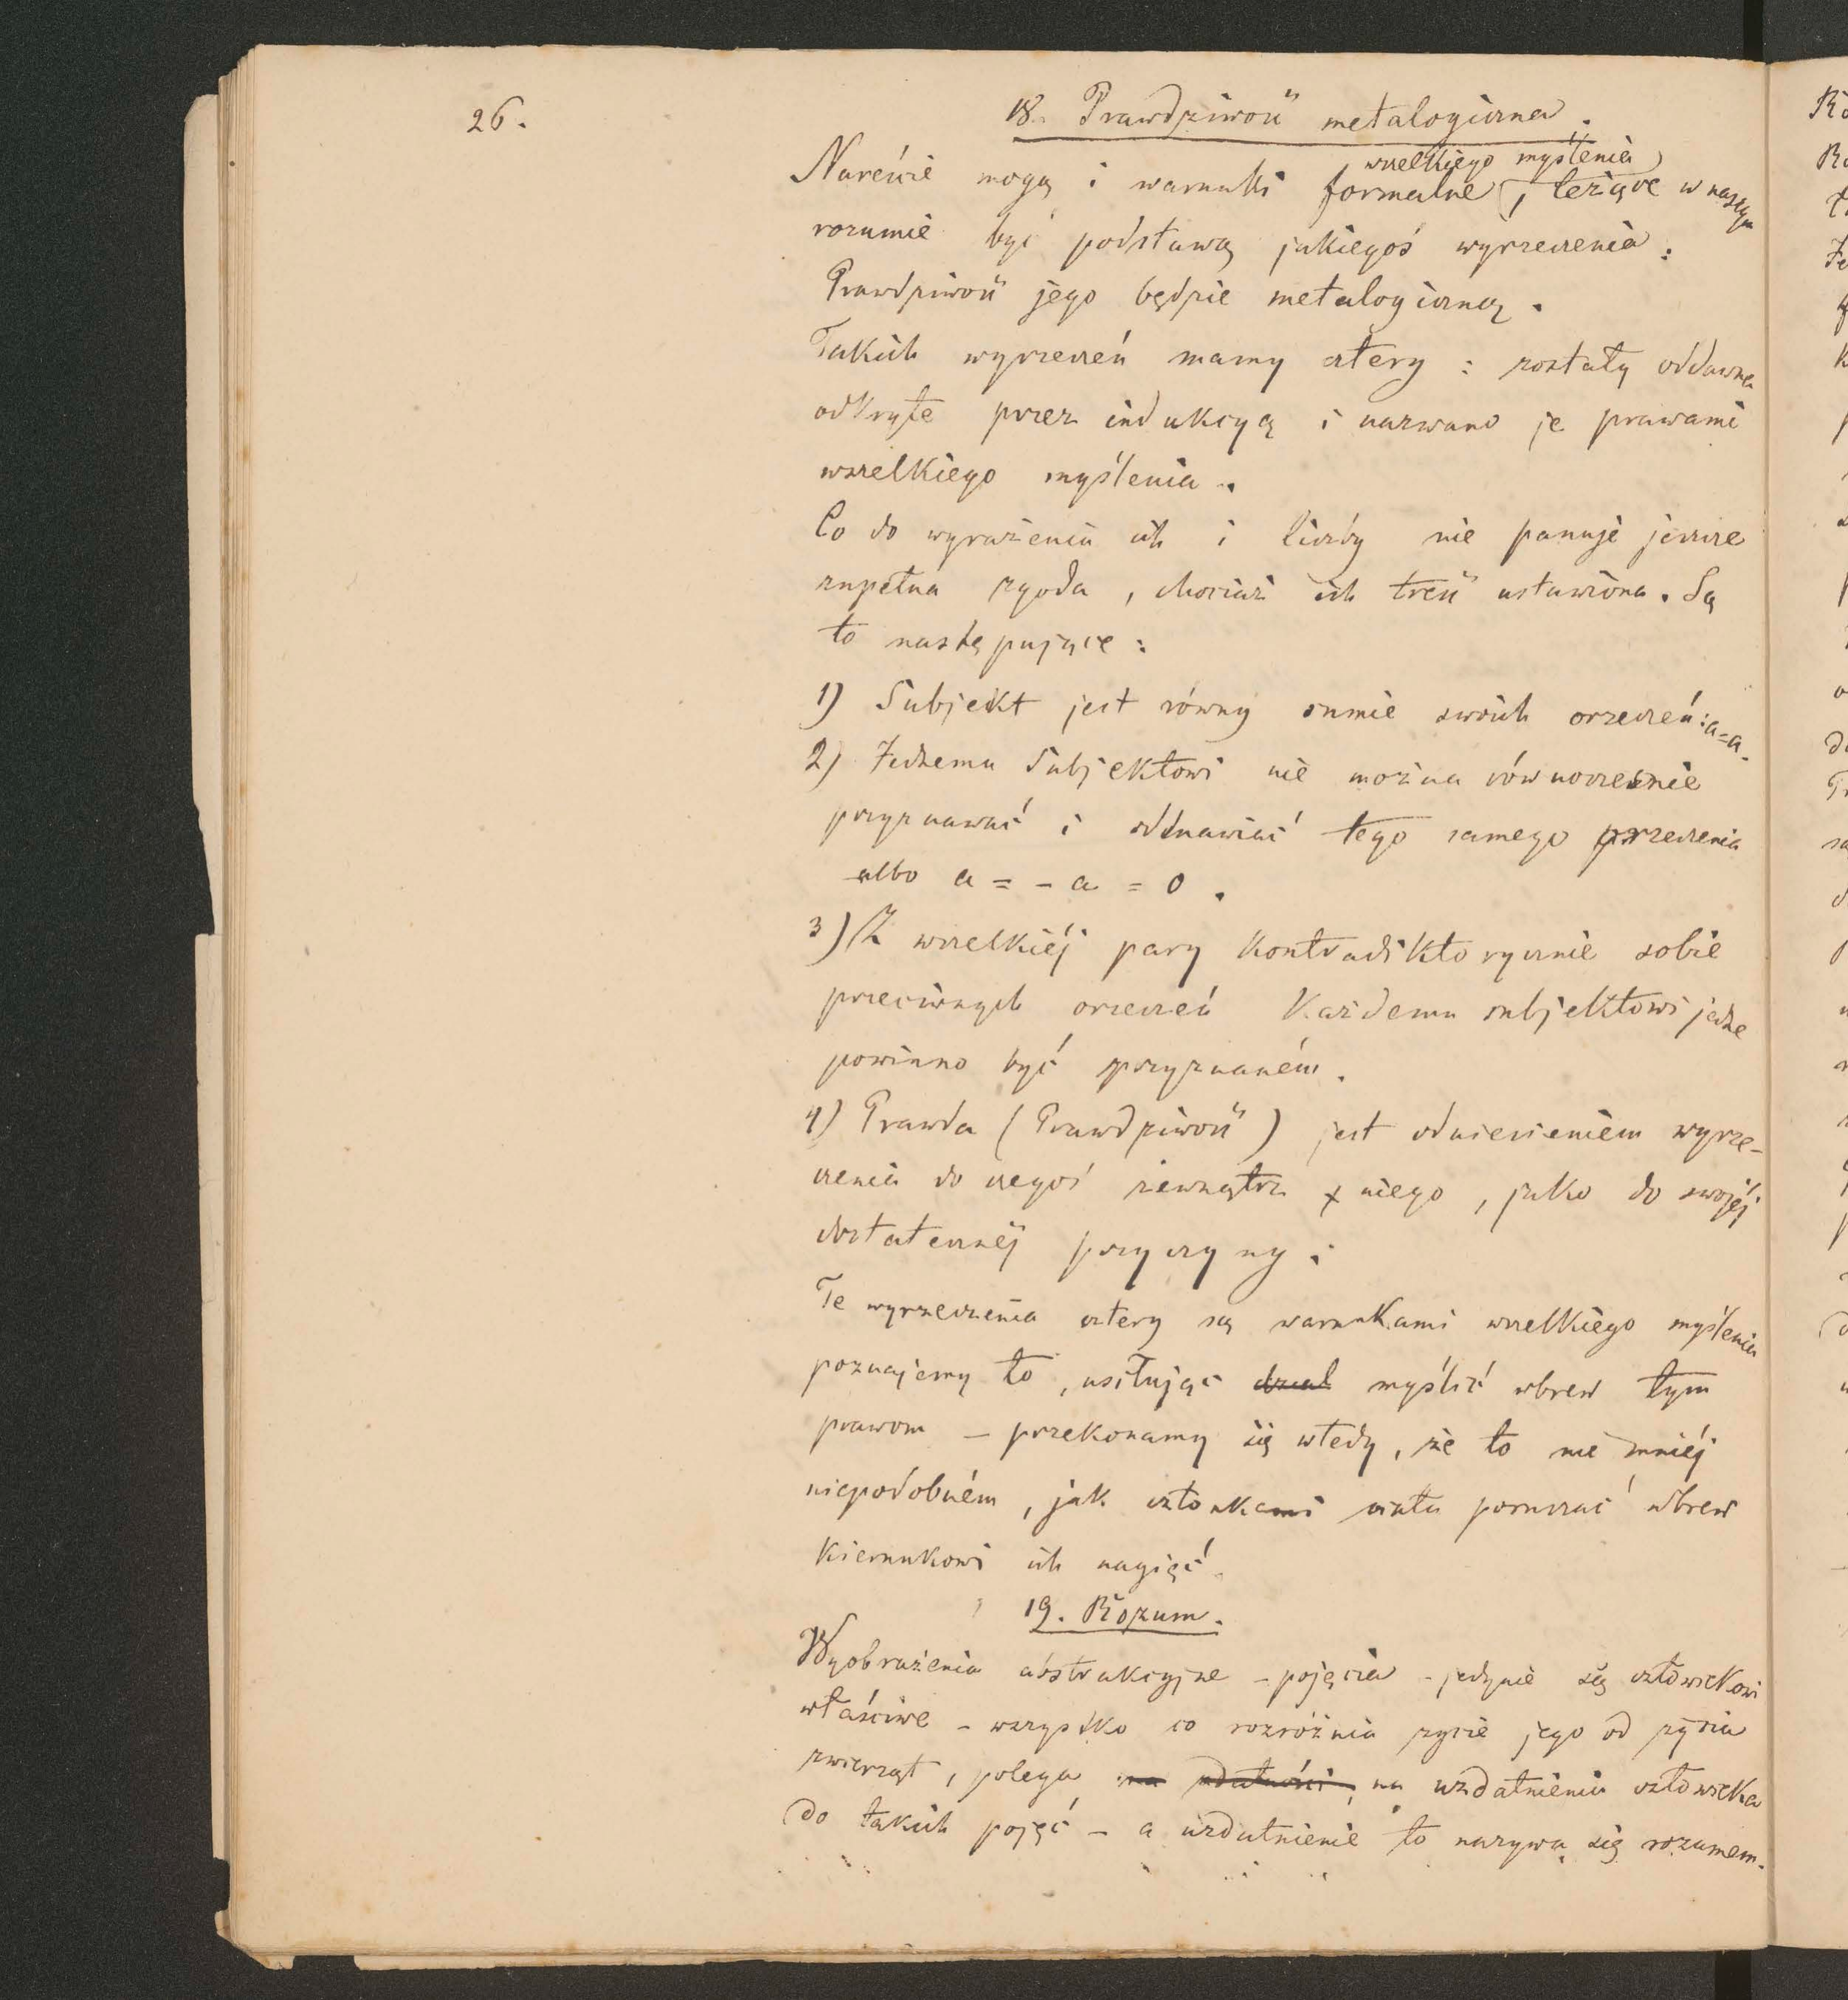 26.
18. Prawdziwość metalogiczna.
wszelkiego myślenia
Nareście mogą i warunki formalne, leżące w naszym
rozumie być podstawą jakiegoś wyrzeczenia:
Prawdziwość jego będzie metalogiczną.
Takich wyrzeczeń mamy cztery: zostały oddawna
odkryte przez indukcyą i nazwano je prawami
wszelkiego myślenia.
Co do wyrażenia ich i liczby nie panuje jeszcze
zupełna zgoda, chociaż ich treść ustawiona. Są
to następujące:
1) Subjekt jest równy sumie swoich orzeczeń: a=a.
2) Żadnemu Subjektowi nie można równocześnie
przyznawać i odmawiać tego samego orzeczenia
albo a = - a = 0.
3) Z wszelkiéj pary kontradiktorycznie sobie
przeciwnych orzeczeń każdemu subjektowi jedne
powinno być przyznaném.
4) Prawda (Prawdziwość) jest odniesieniem wyrze-
czenia do czegoś zewnątrz niego, jako do swojéj
dostatecznéj przyczyny.
Te wyrzeczenia cztery są warunkami wszelkiego myślenia
poznajemy to, usiłując myślić wbrew tym
prawom – przekonamy się wtedy, że to nie mniéj
niepodobném, jak członkami ciała poruszać wbrew
kierunkowi ich nagięć.
19. Rozum.
Wyobrażenia abstrakcyjne – pojęcia – jedynie są człowiekowi
właściwe – wszystko co rozróżnia życie jego od życia
zwierząt, polega na uzdatnieniu człowieka
do takich pojęć – a uzdatnienie to nazywa się rozumem.